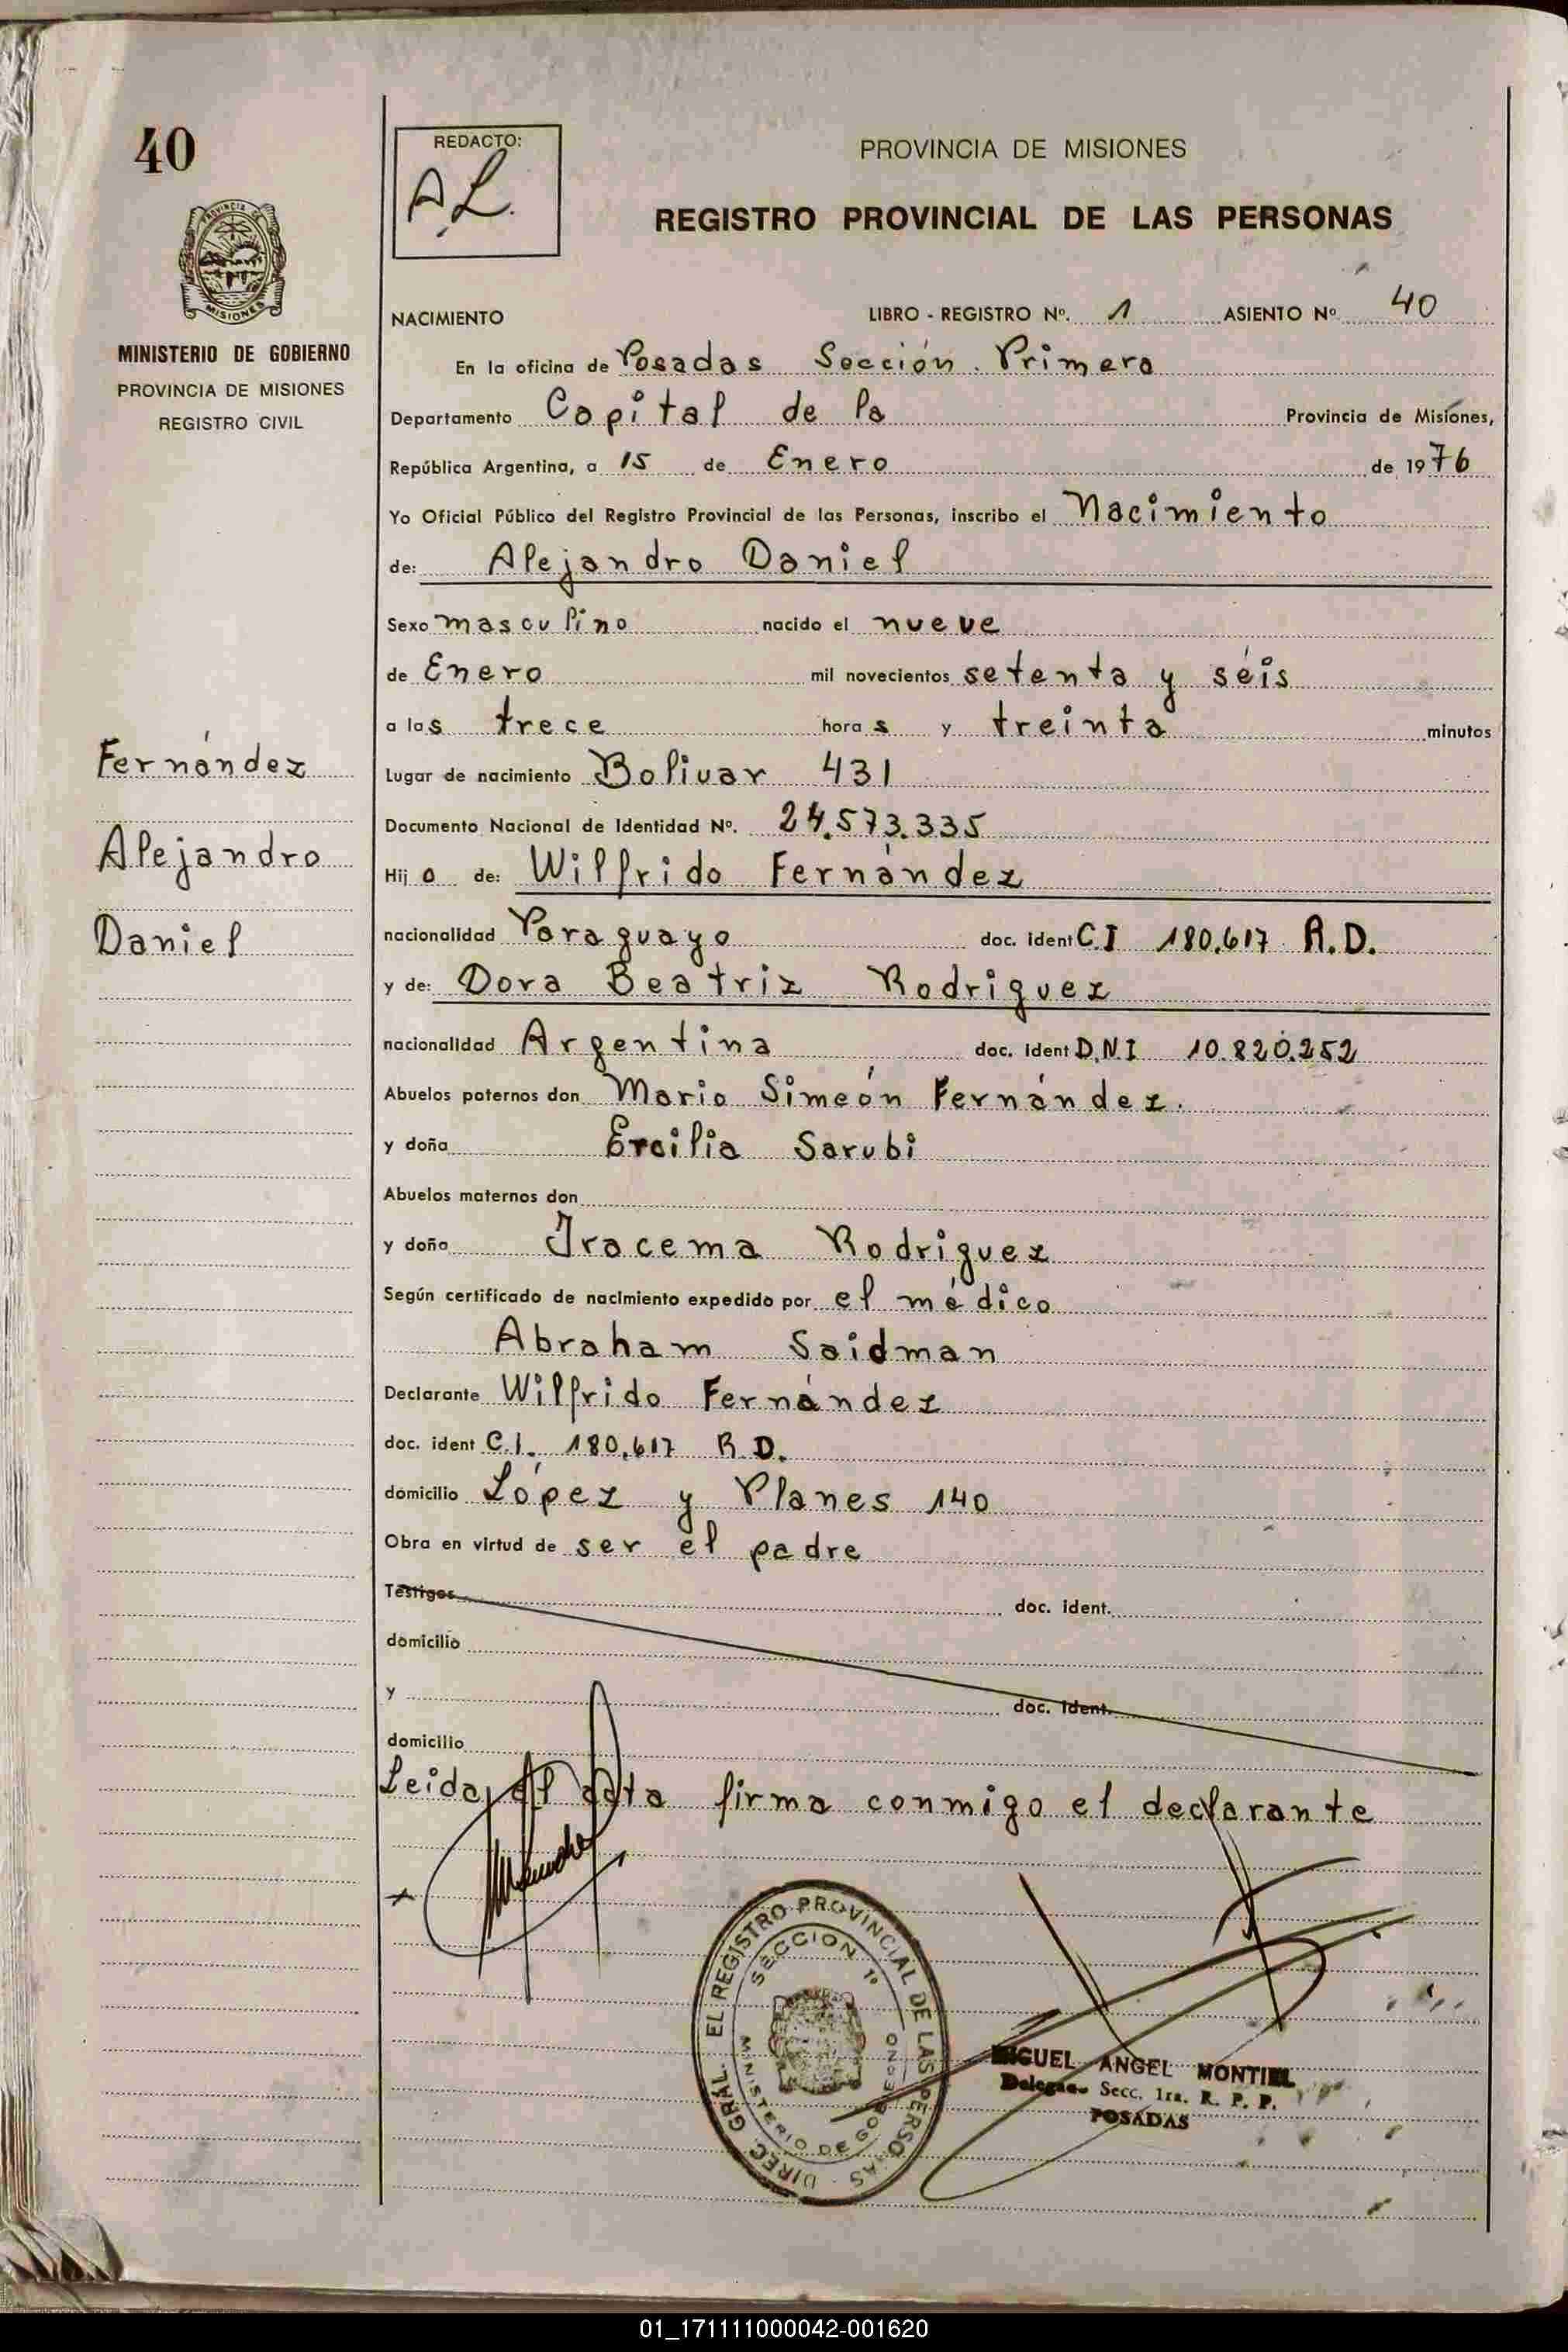 40
REDACTO:
A L.
PROVINCIA DE MISIONES
REGISTRO PROVINCIAL DE LAS PERSONAS
MISIONES
MINISTERIO DE GOBIERNO
PROVINCIA DE MISIONES
REGISTRO CIVIL
NACIMIENTO LIBRO - REGISTRO Nº. 1 ASIENTO Nº 40
En la oficina de Posadas Sección Primera
Departamento Capital de la Provincia de Misiones,
República Argentina, a 15 de Enero de 1976
Yo Oficial Público del Registro Provincial de las Personas, inscribo el Nacimiento
de: Alejandro Daniel
Sexo masculino nacido el nueve
de Enero mil novecientos setenta y séis
a las trece horas y treinta minutos
Fernández
Alejandro
Daniel
Lugar de nacimiento Bolivar 431
Documento Nacional de Identidad Nº. 24.573.335
Hijo de: Wilfrido Fernández
nacionalidad Paraguayo doc. ident C.I 180.617 R.D.
y de: Dora Beatriz Rodriguez
nacionalidad Argentina doc. ident D.N.I 10.820.252
Abuelos paternos don Mario Simeón Fernández.
y doña Ercilia Sarubi
Abuelos maternos don
y doña Iracema Rodriguez
Según certificado de nacimiento expedido por el médico
Abraham Saidman
Declarante Wilfrido Fernández
doc. ident C.I. 180.617 R.D.
domicilio López y Planes 140
Obra en virtud de ser el padre
Testigos doc. ident.
domicilio
y doc. ident.
domicilio
Leida el acta firma conmigo el declarante
DIREC. GRAL. EL REGISTRO PROVINCIAL DE LAS PERSONAS
SECCION 1º
MINISTERIO DE GOBIERNO
MIGUEL ANGEL MONTIEL
Delegado Secc. 1ra. R. P. P.
POSADAS
01_171111000042-001620